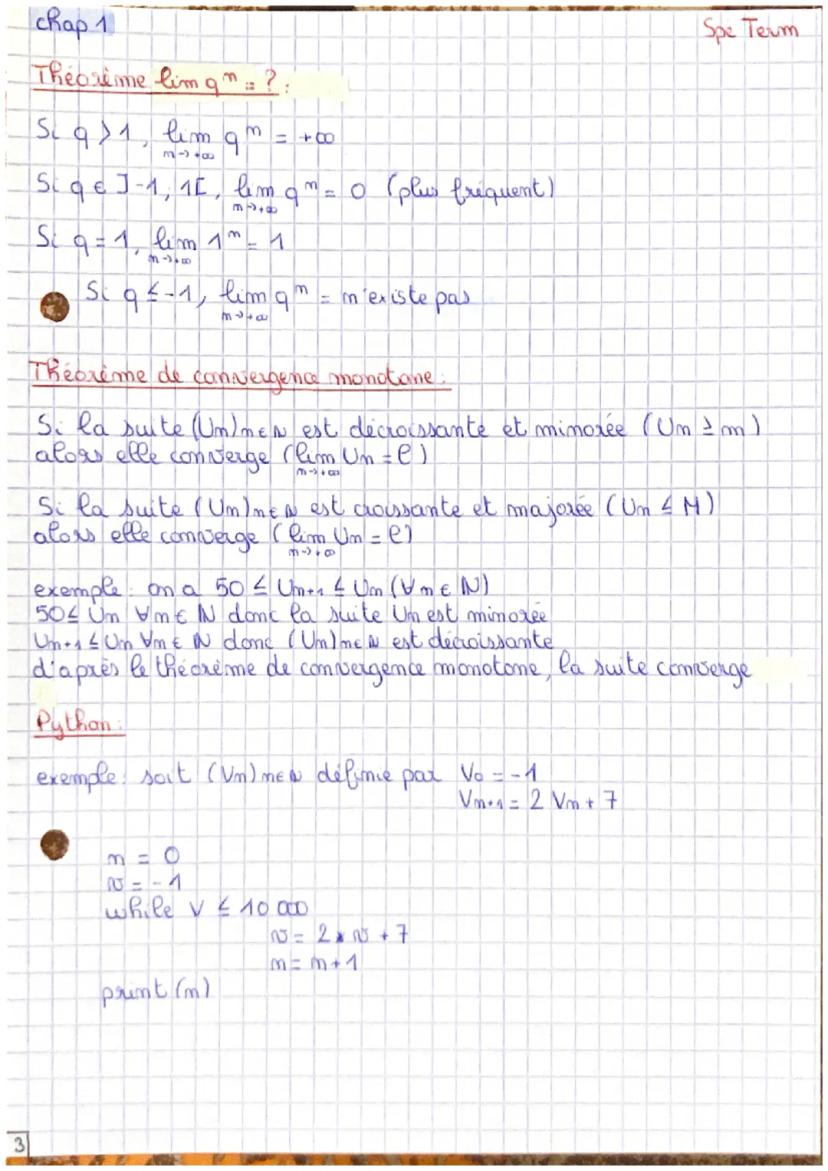 chap 1
Spe Term
Théorème lim qⁿ = ? :
Si q > 1, lim qⁿ = +∞
n→+∞
Si q ∈ ]-1, 1[, lim qⁿ = 0 (plus fréquent)
n→+∞
Si q = 1, lim 1ⁿ = 1
n→+∞
Si q ≤ -1, lim qⁿ = n'existe pas
n→+∞
Théorème de convergence monotone :
Si la suite (Un)n∈ℕ est décroissante et minorée (Un ≥ m)
alors elle converge (lim Un = ℓ)
n→+∞
Si la suite (Un)n∈ℕ est croissante et majorée (Un ≤ M)
alors elle converge (lim Un = ℓ)
n→+∞
exemple : on a 50 ≤ Un+1 ≤ Un (∀n ∈ ℕ)
50 ≤ Un ∀n ∈ ℕ donc la suite Un est minorée
Un+1 ≤ Un ∀n ∈ ℕ donc (Un)n∈ℕ est décroissante
d'après le théorème de convergence monotone, la suite converge
Python :
exemple : soit (Vn)n∈ℕ définie par V₀ = -1
Vn+1 = 2 Vn + 7
n = 0
v = -1
while v ≤ 10 000
v = 2 * v + 7
n = n + 1
print (n)
3